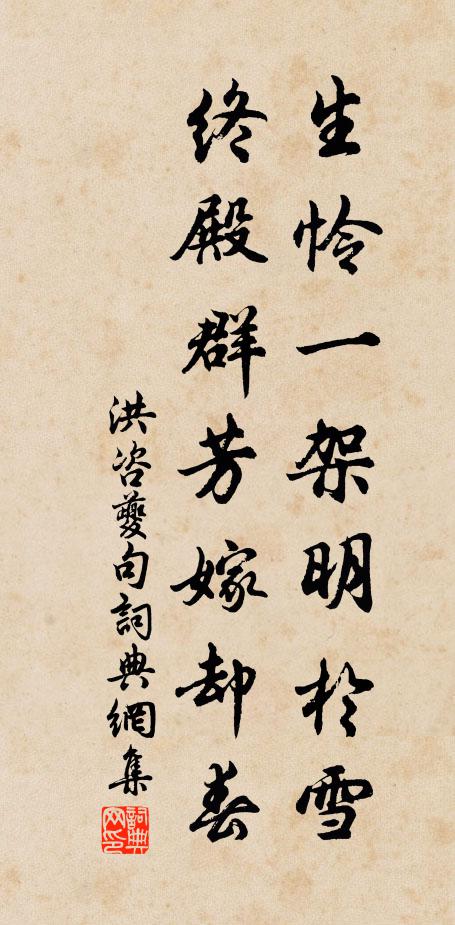 生怜一架明於雪
终殿群芳嫁却春
洪咨夔句詞典網集
詞典
网印